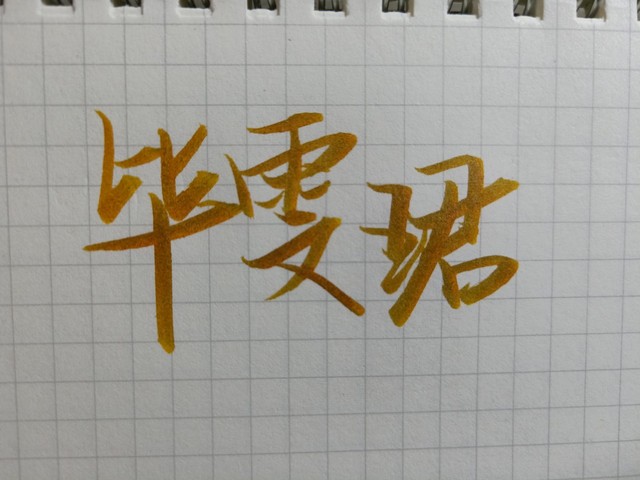 毕雯珺